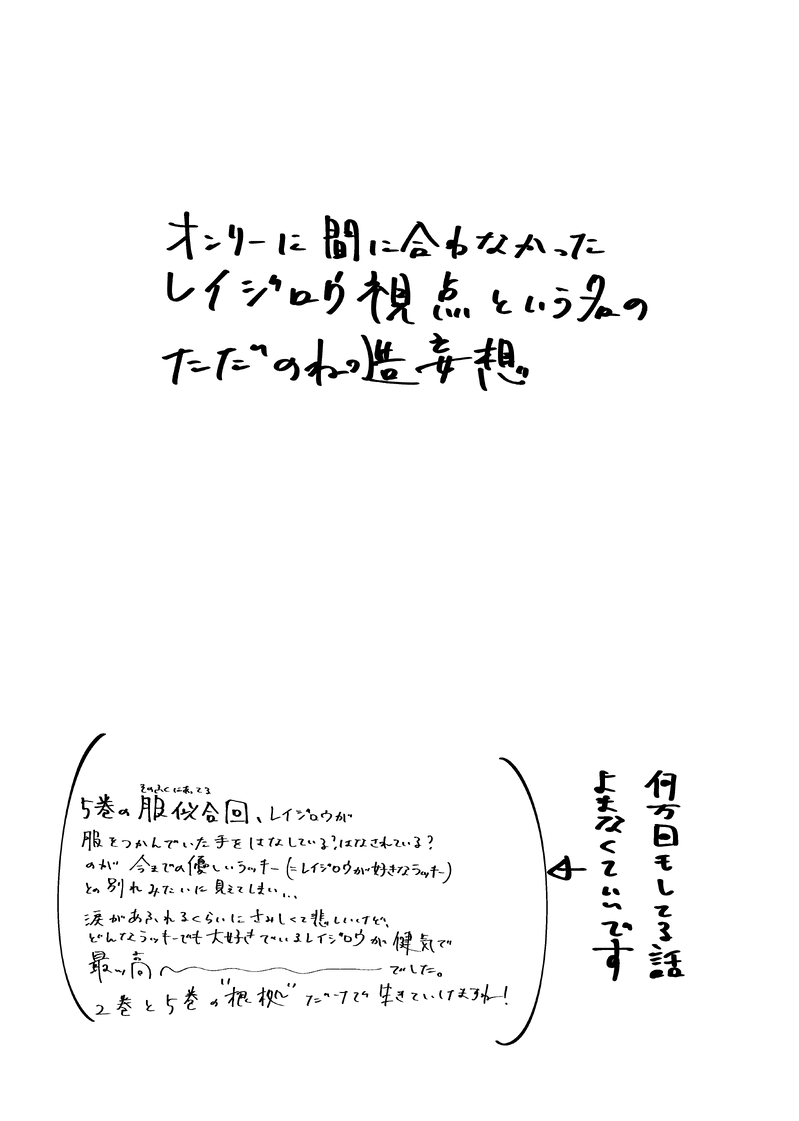 オンリーに間に合わなかった
レイジロウ視点という名の
ただのねつ造妄想
何万回もしてる話
よまなくていいです
そのふくにあってる
5巻の服似合回、レイジロウが
服をつかんでいた手をはなしている?はなされている?
のが今までの優しいラッキー(=レイジロウが好きなラッキー)
との別れみたいに見えてしまい…
涙があふれるくらいにさみしくて悲しいけど、
どんなラッキーでも大好きでいるレイジロウが健気で
最ッ高〜でした。
2巻と5巻の"根拠"だけで生きていけますね!